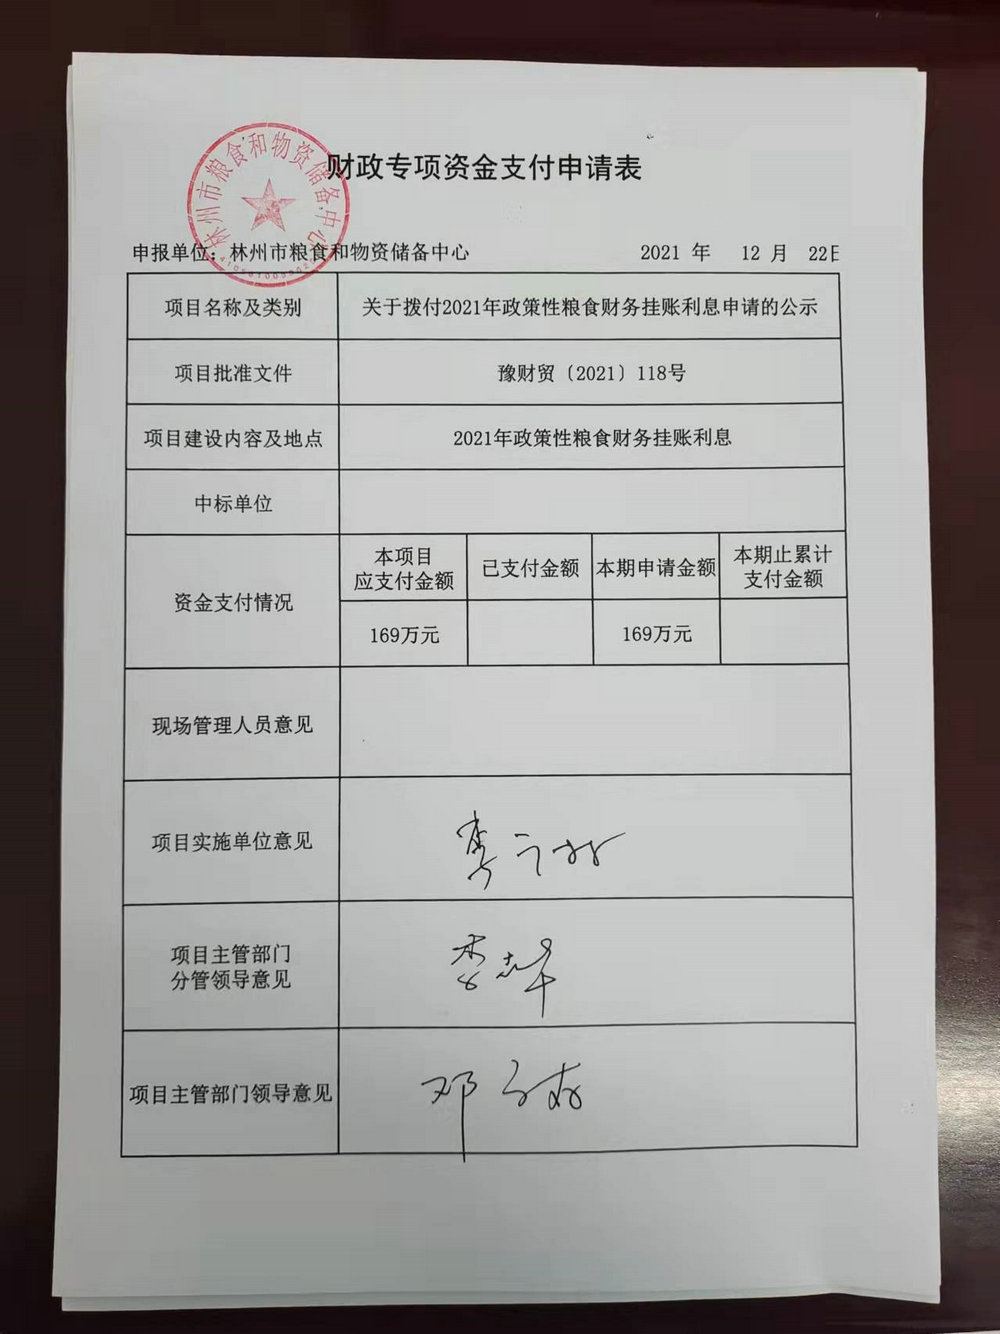 林州市粮食和物资储备中心
财政专项资金支付申请表
申报单位：林州市粮食和物资储备中心 2021 年 12 月 22日
项目名称及类别 关于拨付2021年政策性粮食财务挂账利息申请的公示
项目批准文件 豫财贸〔2021〕118号
项目建设内容及地点 2021年政策性粮食财务挂账利息
中标单位
资金支付情况
本项目
应支付金额
已支付金额
本期申请金额
本期止累计
支付金额
169万元
169万元
现场管理人员意见
项目实施单位意见
项目主管部门
分管领导意见
项目主管部门领导意见